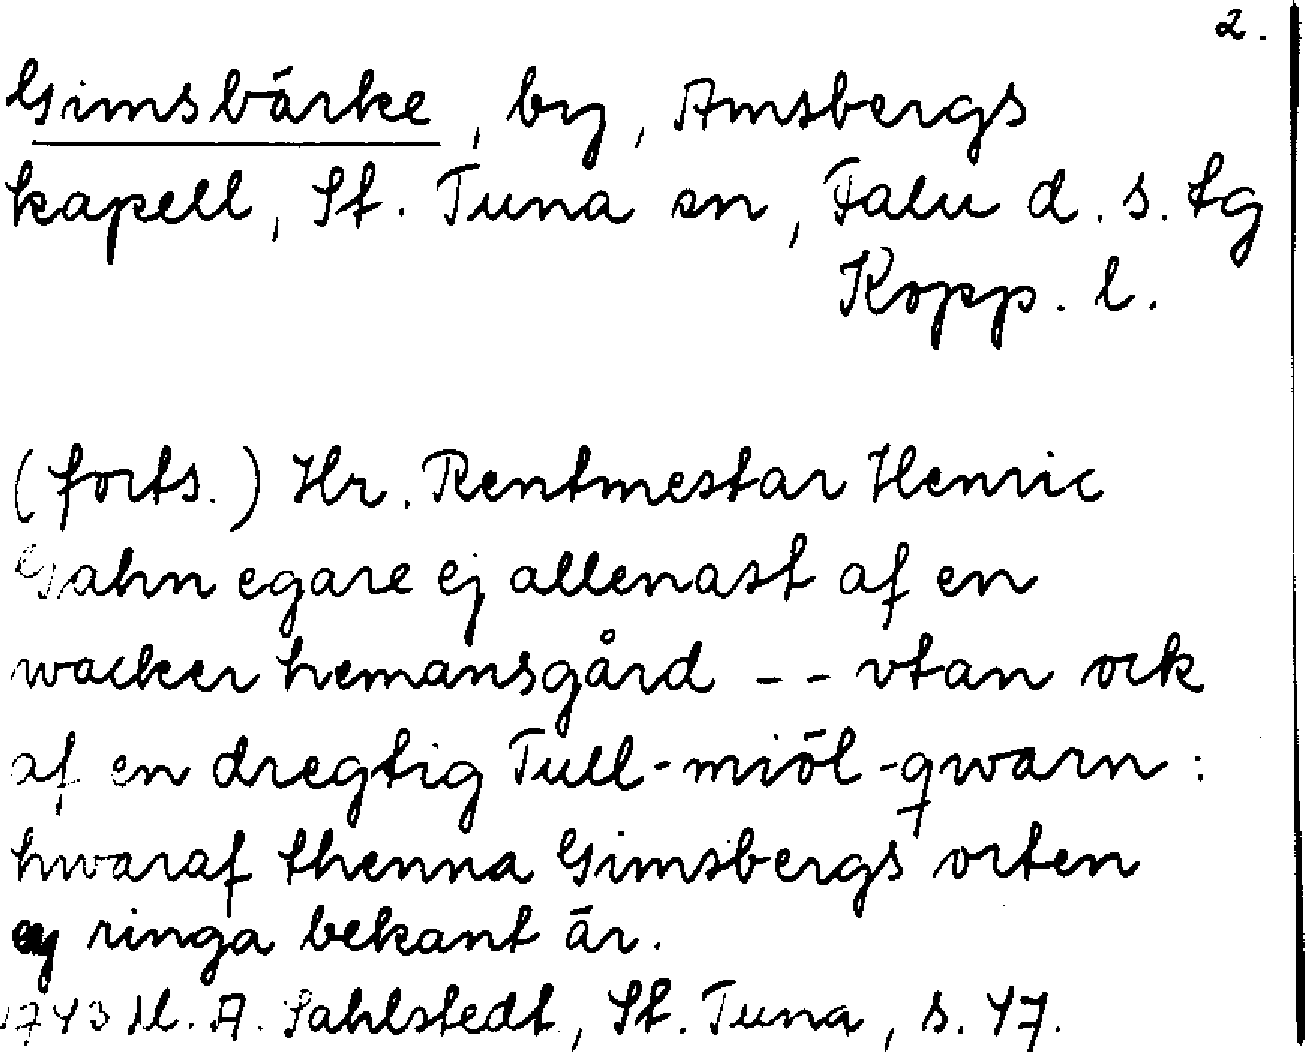 2.
Gimsbärke, by, Amsbergs
kapell, St. Tuna sn, Falu d. s. tg
Kopp. l.
(forts.) Hr. Rentmestar Henric
Gahn egare ej allenast af en
wacker hemansgård -- vtan ock
af en dregtig Tull-miöl-qwarn:
hwaraf thenna Gimsbergs orten
ey ringa bekant är.
1743 A. Sahlstedt, St. Tuna, s. 47.